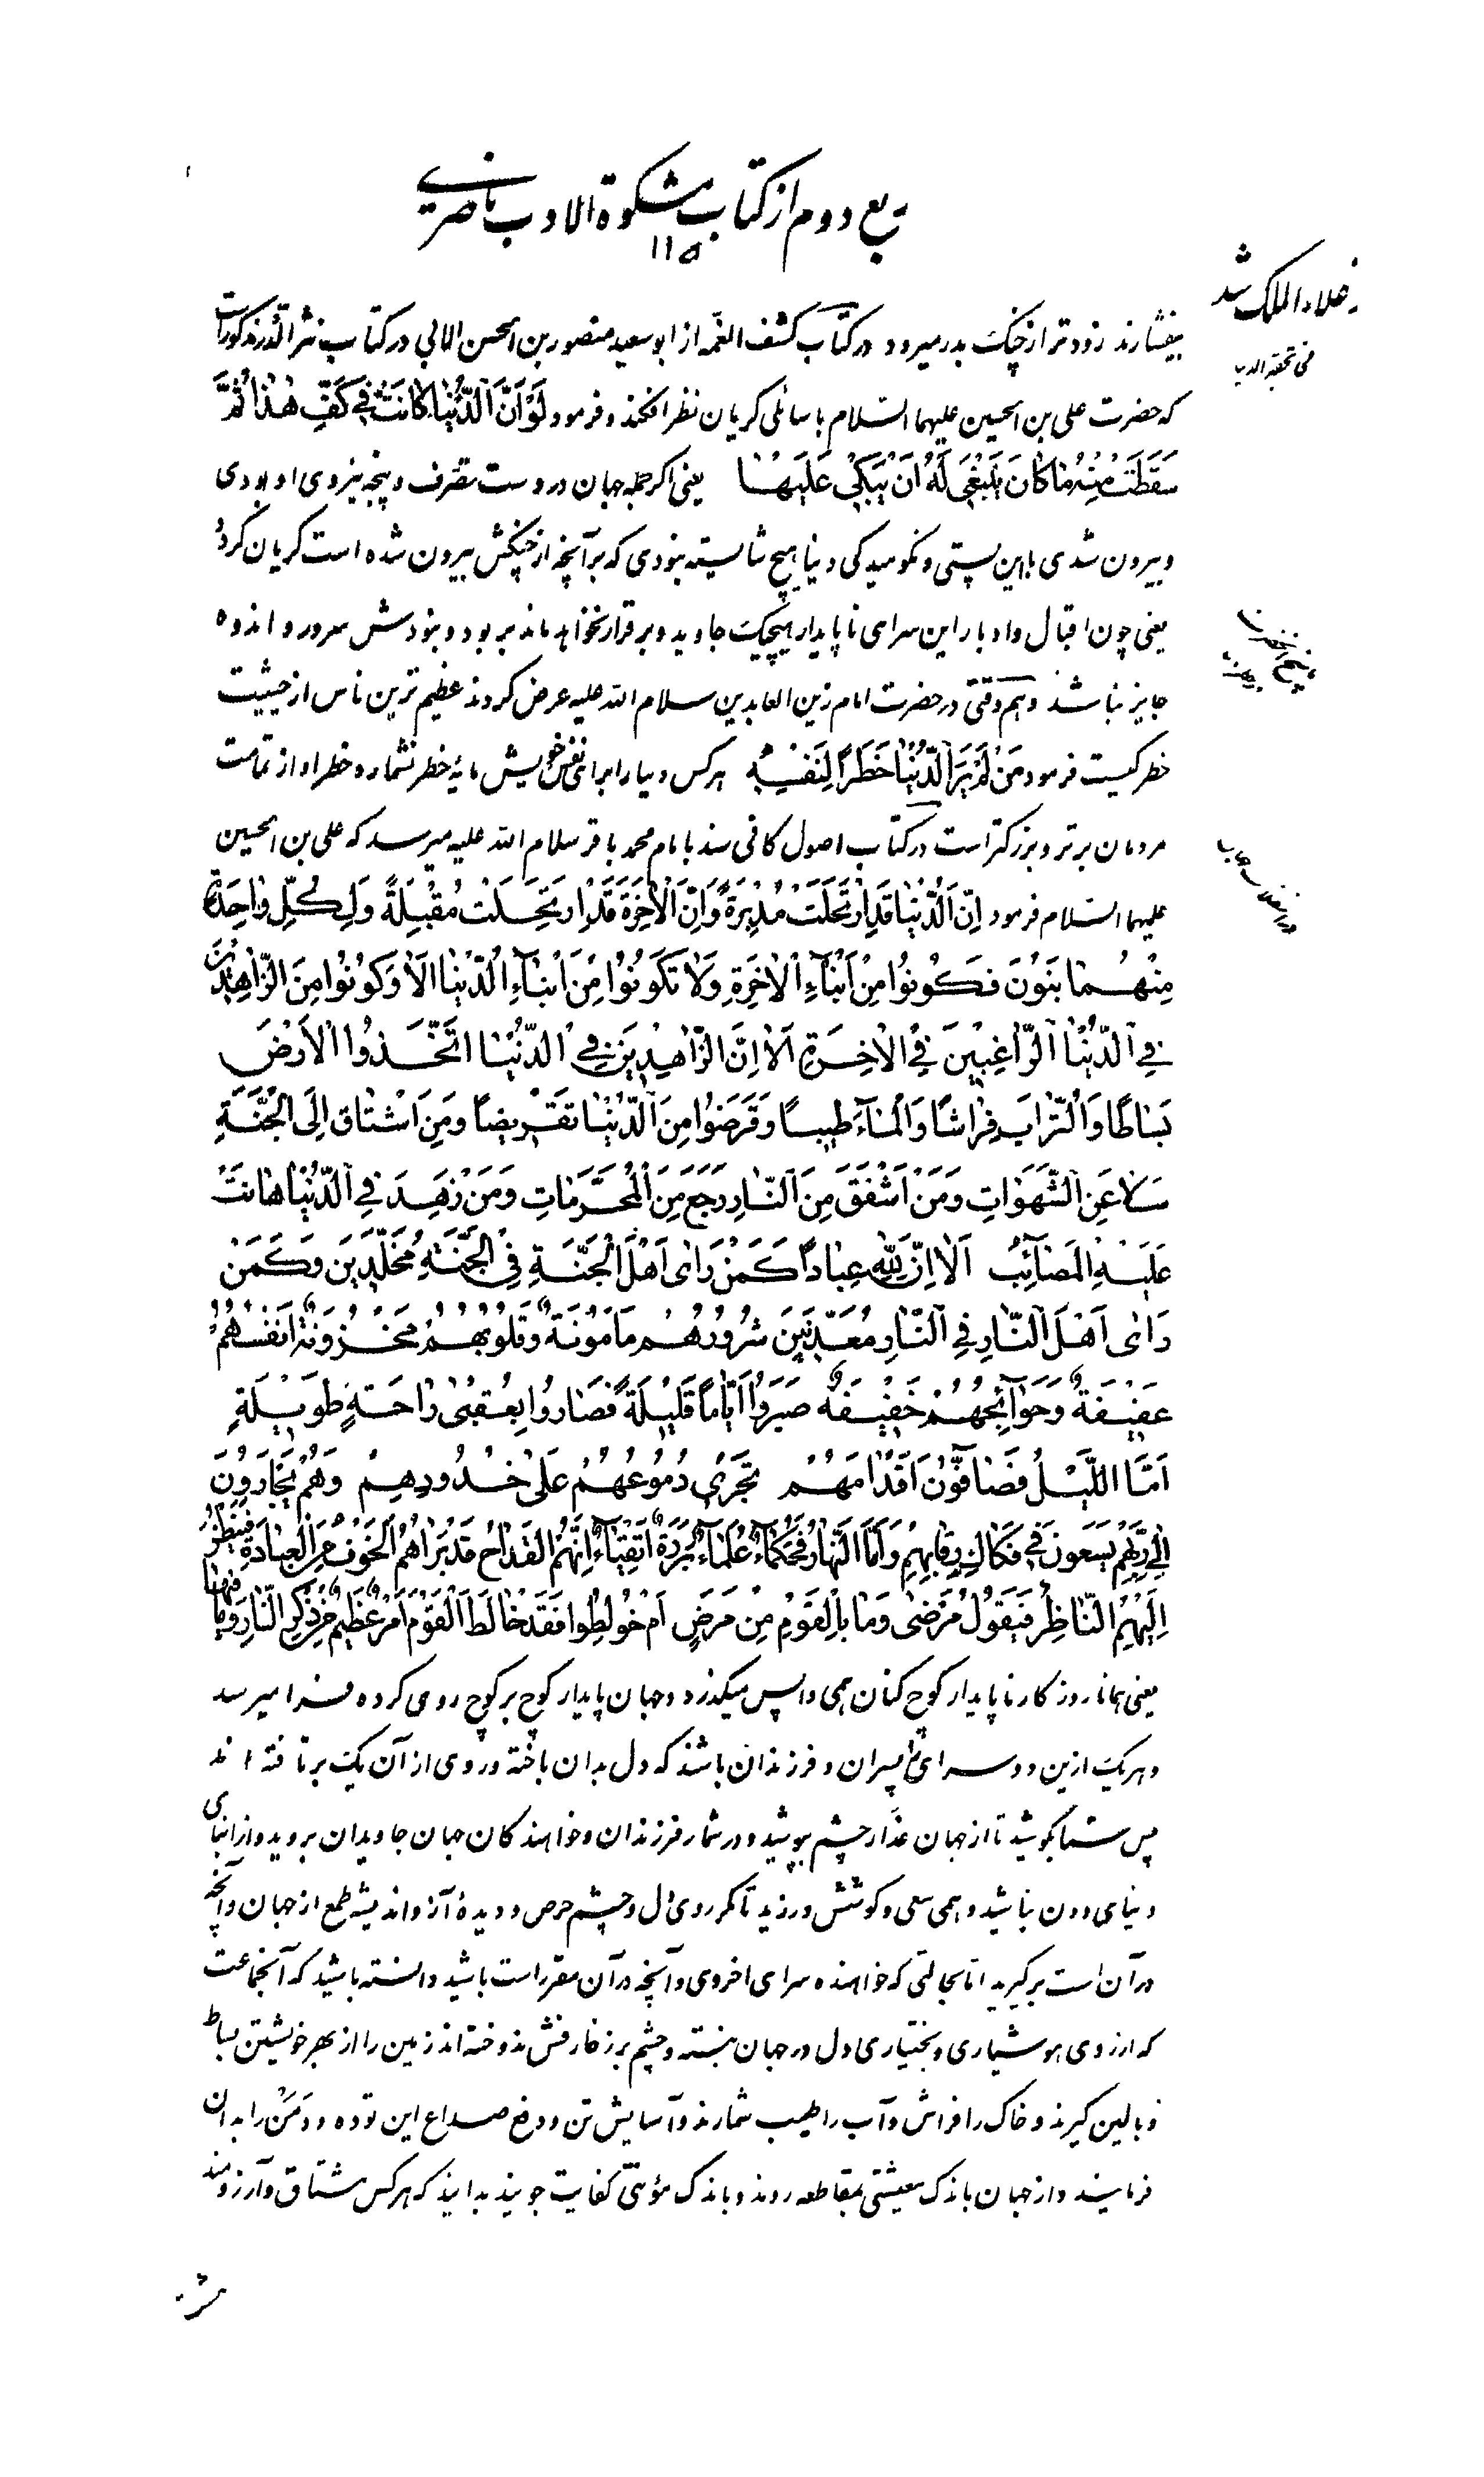 ربع دوم از کتاب مشکوة الادب ناصری
۱۱۵
بیفشارند زودتر از چنگ بدر میرود در کتاب کشف الغمّه از ابو سعید منصور بن الحسن الابی در کتاب نثر الدّرر مذکور است
که حضرت علی بن الحسین علیهما السّلام با سائلی گریان نظر افکند و فرمود لَوْ اَنَّ الدُّنْیٰا کٰانَتْ فی کَفِّ هٰذٰا ثُمَّ
سَقَطَتْ مِنْهُ مٰا کٰانَ یَنْبَغی لَهُ اَنْ یَبْکِیَ عَلَیْهٰا یعنی اگر جمله جهان در دست تصّرف و پنجه نیروی او بودی
و بیرون شدی با این پستی و نکوهیدگی دنیا هیچ شایسته نبودی که بر آنچه از چنگش بیرون شده است گریان گردد
یعنی چون اقبال و ادبار این سرای ناپایدار هیچیک جاوید و برقرار نخواهد ماند بر بود و نبودش سرور و اندوه
جایز نباشد و هم وقتی در حضرت امام زین العابدین سلام الله علیه عرض کردند عظیم ترین ناس از حیثیت
خطر کیست فرمود مَنْ لَمْ یَرَ الدُّنْیٰا خَطَرًا لِنَفْسِهِ هر کس دنیا را برای نفس خویش مایهٔ خطر نشمارد خطر او از تمامت
مردمان برتر و بزرگتر است در کتاب اصول کافی سند بامام محمد باقر سلام الله علیه میرسد که علی بن الحسین
علیهما السّلام فرمود اِنَّ الدُّنْیٰا قَدِ ارْتَحَلَتْ مُدْبِرَةً وَاِنَّ الْاٰخِرَةَ قَدِ ارْتَحَلَتْ مُقْبِلَةً وَلِکُلِّ وٰاحِدَةٍ
مِنْهُمٰا بَنُونَ فَکُونُوا مِنْ اَبْنٰآءِ الْاٰخِرَةِ وَلٰا تَکُونُوا مِنْ اَبْنٰآءِ الدُّنْیٰا اَلٰا وَکُونُوا مِنَ الزّٰاهِدینَ
فِی الدُّنْیٰا الرّٰاغِبینَ فِی الْاٰخِرَةِ اَلٰا اِنَّ الزّٰاهِدینَ فِی الدُّنْیٰا اتَّخَذُوا الْاَرْضَ
بِسٰاطًا وَالتُّرٰابَ فِرٰاشًا وَالْمٰآءَ طیبًا وَقُرِضُوا مِنَ الدُّنْیٰا تَقْریضًا وَمَنِ اشْتٰاقَ اِلَی الْجَنَّةِ
سَلٰا عَنِ الشَّهَوٰاتِ وَمَنْ اَشْفَقَ مِنَ النّٰارِ رَجَعَ مِنَ الْمُحَرَّمٰاتِ وَمَنْ زَهِدَ فِی الدُّنْیٰا هٰانَتْ
عَلَیْهِ الْمَصٰآئِبُ اَلٰا اِنَّ لِلّٰهِ عِبٰادًا کَمَنْ رَاٰی اَهْلَ الْجَنَّةِ فِی الْجَنَّةِ مُخَلَّدینَ وَکَمَنْ
رَاٰی اَهْلَ النّٰارِ فِی النّٰارِ مُعَذَّبینَ شُرُورُهُمْ مَاْمُونَةٌ وَقُلُوبُهُمْ مَحْزُونَةٌ اَنْفُسُهُمْ
عَفیفَةٌ وَحَوٰآئِجُهُمْ خَفیفَةٌ صَبَرُوا اَیّٰامًا قَلیلَةً فَصٰارُوا بِعُقْبٰی رٰاحَةٍ طَویلَةٍ
اَمَّا اللَّیْلُ فَصٰافُّونَ اَقْدٰامَهُمْ تَجْری دُمُوعُهُمْ عَلٰی خُدُودِهِمْ وَهُمْ یَجْاَرُونَ
اِلٰی رَبِّهِمْ یَسْعَوْنَ فی فَکٰاکِ رِقٰابِهِمْ وَاَمَّا النَّهٰارُ فَحُکَمٰآءُ عُلَمٰآءُ بَرَرَةٌ اَتْقِیٰآءُ کَاَنَّهُمُ الْقِدٰاحُ قَدْ بَرٰاهُمُ الْخَوْفُ مِنَ الْعِبٰادَةِ فَیَنْظُرُ
اِلَیْهِمُ النّٰاظِرُ فَیَقُولُ مَرْضٰی وَمٰا بِالْقَوْمِ مِنْ مَرَضٍ اَمْ خُولِطُوا فَقَدْ خٰالَطَ الْقَوْمَ اَمْرٌ عَظیمٌ مِنْ ذِکْرِ النّٰارِ وَمٰا فیهٰا
یعنی همانا روزگار ناپایدار کوچ کنان همی واپس میگذرد و جهان پایدار کوچ بر کوچ روی کرده فرا میرسد
و هریک ازین دو سرای را پسران و فرزندان باشند که دل بدان باخته و روی از آن یک برتافته اند
پس شما بکوشید تا از جهان غدّار چشم بپوشید و در شمار فرزندان و خواهندگان جهان جاویدان بروید و از ابنای
دنیای دون نباشید و همی سعی و کوشش ورزید تا مگر روی دل و چشم حرص و دیدهٔ آز و اندیشه طمع از جهان و آنچه
در آن است برگیرید اما بحالتی که خواهنده سرای اخروی و آنچه در آن مقرر است باشید دانسته باشید که آنجماعت
که از روی هوشیاری و بختیاری دل در جهان نبسته و چشم بر زخارفش ندوخته اند زمین را از بهر خویشتن بساط
و بالین گیرند و خاک را فراش و آب را طیب شمارند و آسایش تن و دفع صداع این توده و دمن را بدان
فرمایند و از جهان باندک معیشتی بمقاطعه روند و باندک مؤنتی کفایت جویند بدانید که هر کس مشتاق و آرزومند